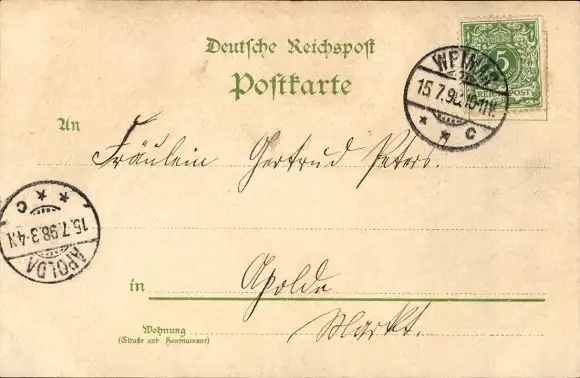 Deutsche Reichspost
Postkarte
5
REICHSPOST
WEIMAR
15.7.98.10-11V.
* * C
An
Fräulein Gertrud Peters.
APOLDA
15.7.98.3-4N
* * C
in Apolda
Markt.
Wohnung
(Straße und Hausnummer)